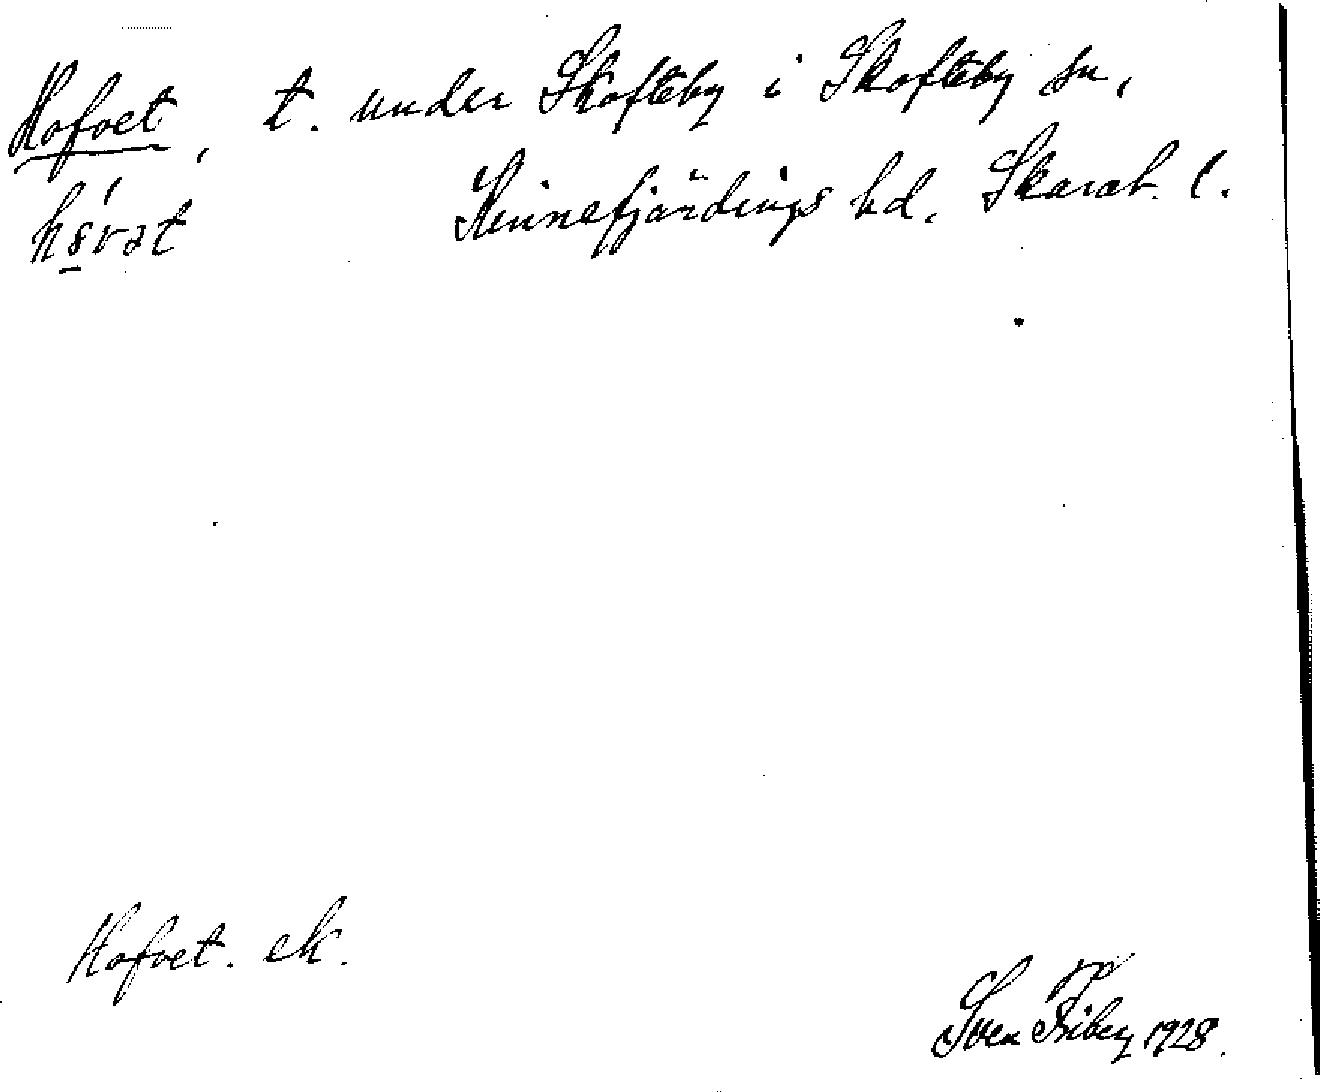 Hofvet, t. under Skofteby i Skofteby sn,
hǿvat Kinnefjärdings hd. Skarab. l.
Hofvet. ek.
Sven Friberg 1928.